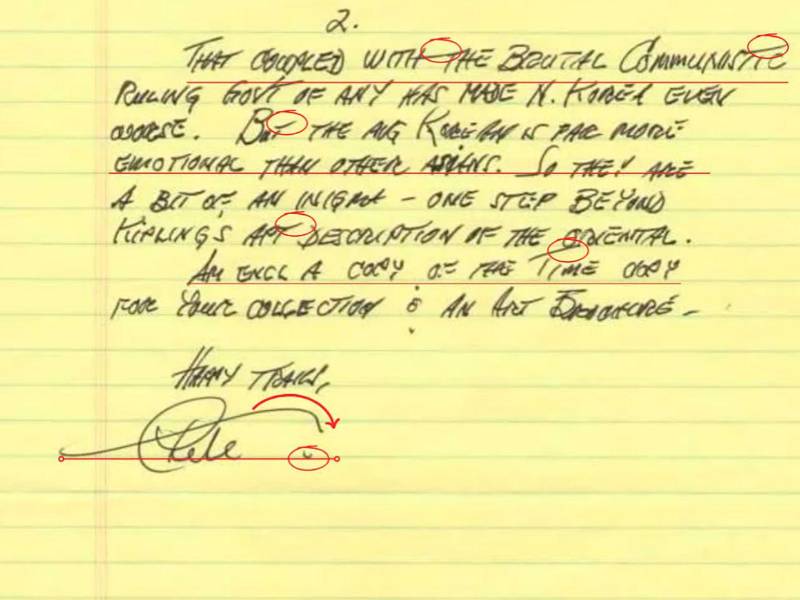 2.
THAT COUPLED WITH THE BRUTAL COMMUNISTIC
RULING GOVT OF ANY HAS MADE N. KOREA EVEN
WORSE. BUT THE AVG KOREAN IS FAR MORE
EMOTIONAL THAN OTHER ASIANS. SO THEY ARE
A BIT OF AN INIGMA – ONE STEP BEYOND
KIPLINGS APT DESCRIPTION OF THE ORIENTAL.
AM ENCL A COPY OF THE TIME COPY
FOR YOUR COLLECTION & AN ART BROCHURE –
HAPPY TRAILS,
Pete